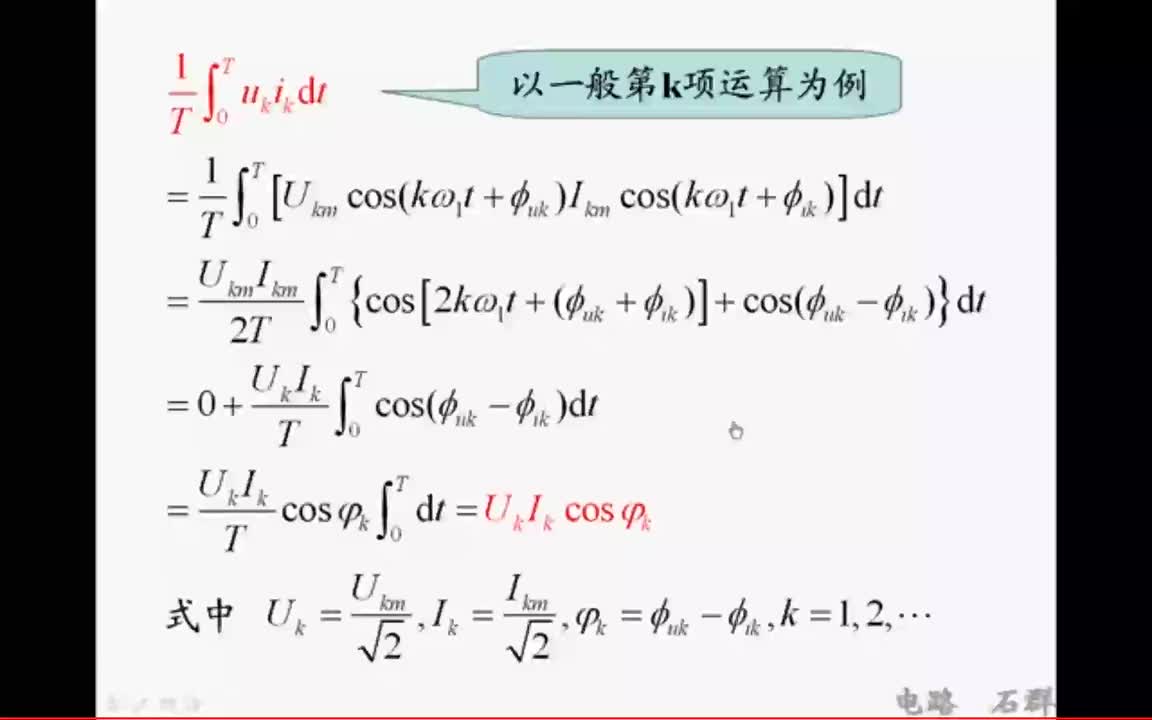 $\frac{1}{T}\int_0^T u_k i_k \mathrm{d}t$ 以一般第k项运算为例
$=\frac{1}{T}\int_0^T \left[U_{km}\cos(k\omega_1 t+\phi_{uk})I_{km}\cos(k\omega_1 t+\phi_{ik})\right]\mathrm{d}t$
$=\frac{U_{km}I_{km}}{2T}\int_0^T \left\{\cos\left[2k\omega_1 t+(\phi_{uk}+\phi_{ik})\right]+\cos(\phi_{uk}-\phi_{ik})\right\}\mathrm{d}t$
$=0+\frac{U_k I_k}{T}\int_0^T \cos(\phi_{uk}-\phi_{ik})\mathrm{d}t$
$=\frac{U_k I_k}{T}\cos\varphi_k\int_0^T \mathrm{d}t=U_k I_k\cos\varphi_k$
式中 $U_k=\frac{U_{km}}{\sqrt{2}},I_k=\frac{I_{km}}{\sqrt{2}},\varphi_k=\phi_{uk}-\phi_{ik},k=1,2,\cdots$
电路 石群